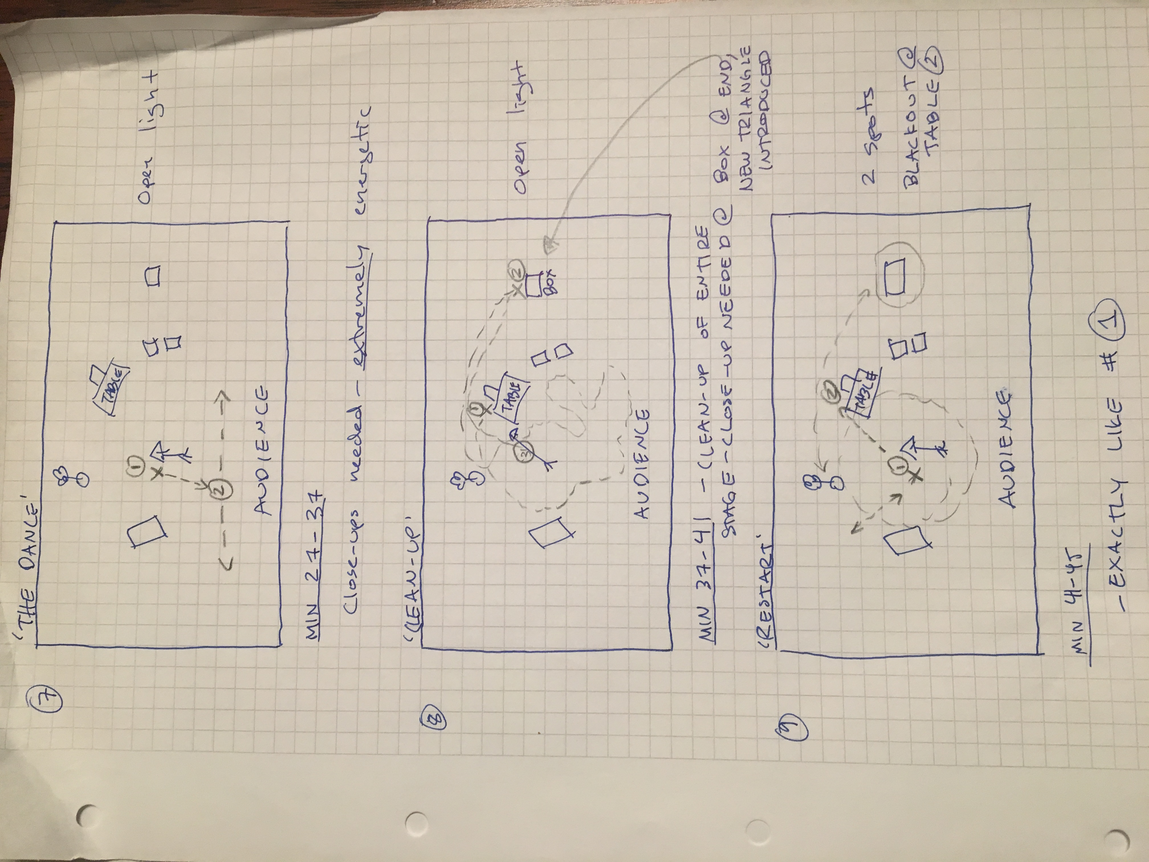 7
'THE DANCE'
Open light
TABLE
1
2
AUDIENCE
MIN 27-37
Close-ups needed - extremely energetic
8
'CLEAN-UP'
Open light
1
2
BOX
TABLE
3
AUDIENCE
MIN 37-41 - CLEAN-UP OF ENTIRE
STAGE - CLOSE-UP NEEDED @ BOX @ END,
NEW TRIANGLE
INTRODUCED
9
'RESTART'
2 spots
BLACKOUT @
TABLE 2
2
TABLE
1
AUDIENCE
MIN 41-45
- EXACTLY LIKE # 1